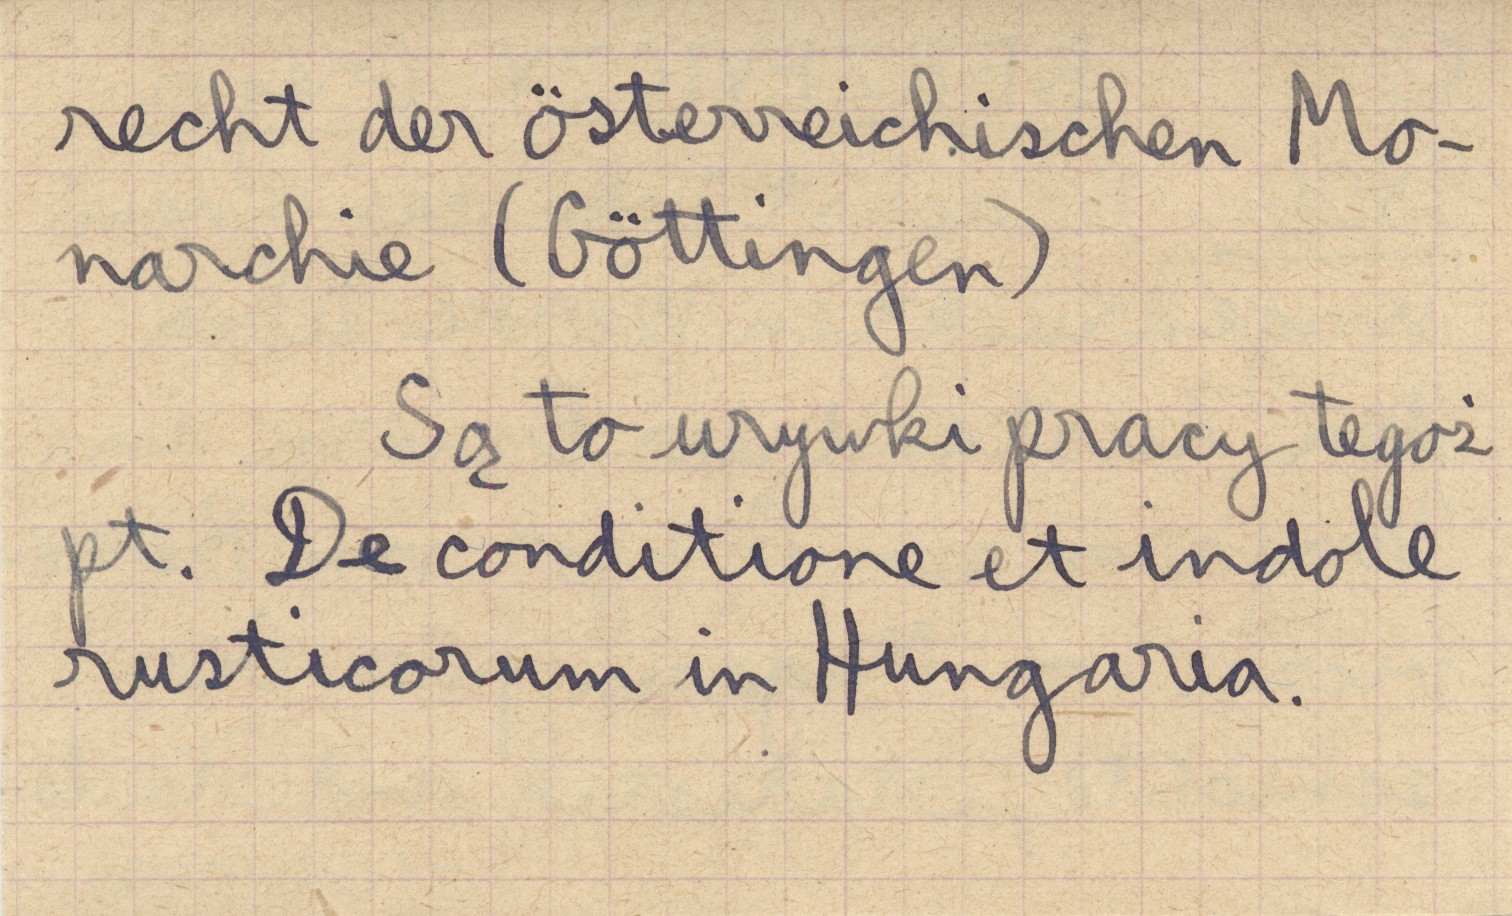 recht der österreichischen Mo-
narchie (Göttingen)
Są to urywki pracy tegoż
pt. De conditione et indole
rusticorum in Hungaria.